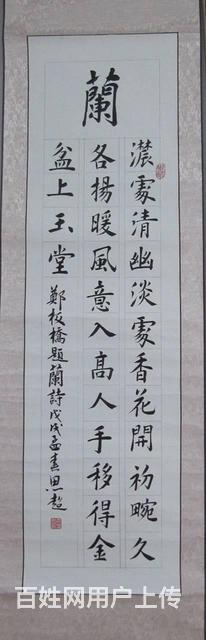 蘭
濃處清幽淡處香花開初畹久
各揚暖風意入高人手移得金
盆上玉堂
鄭板橋題蘭詩戊戌孟春思超
百姓网用户上传